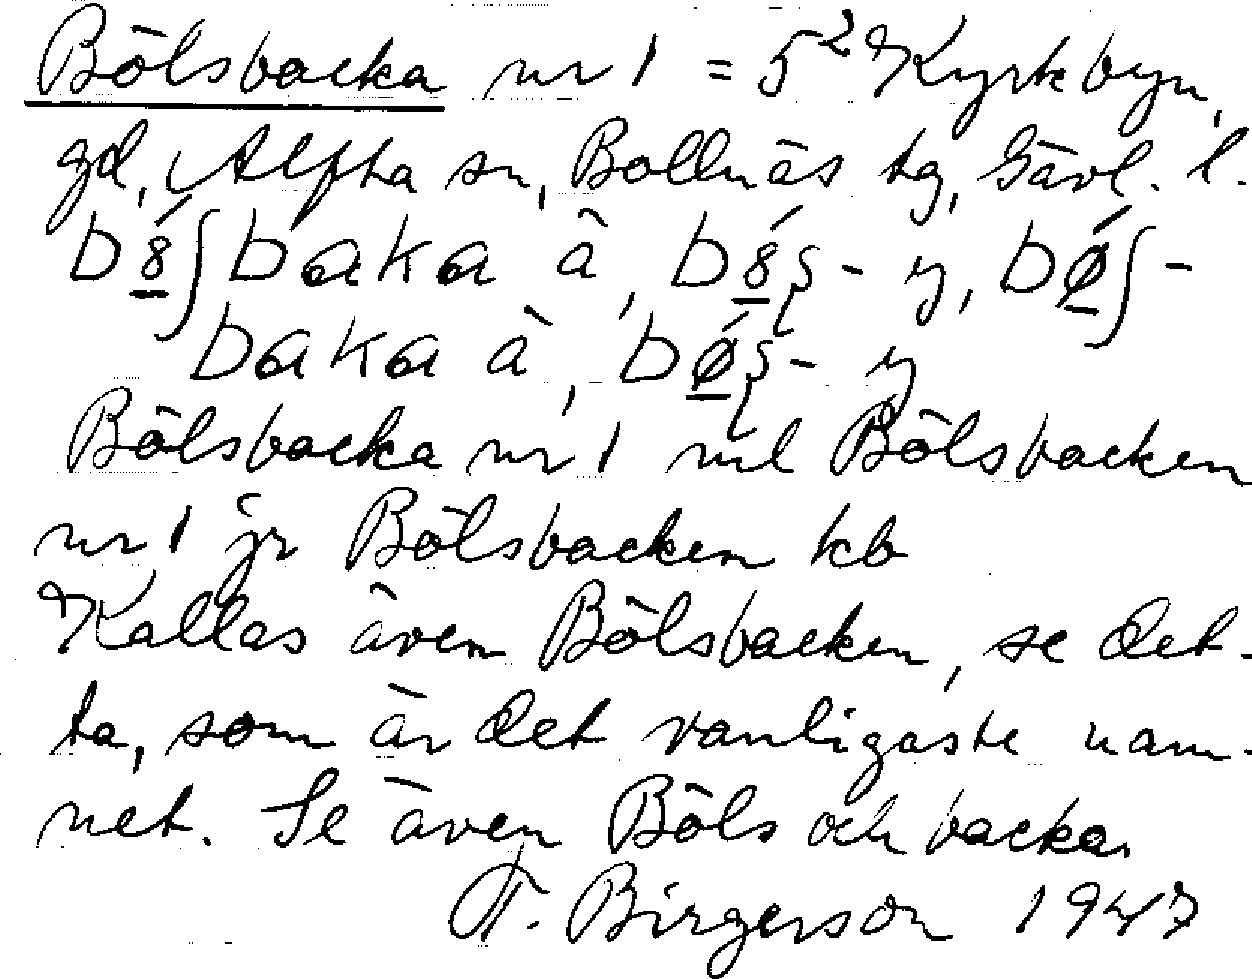 Bölsbacka nr 1 = 5² Kyrkbyn,
gd, Alfta sn, Bollnäs tg, Gävl. l.
b8́ʃbaka à, b8́ʂ- y, bǿʃ-
baka à, bǿʂ- y
Bölsbacka nr 1 ml Bölsbacken
nr 1 jr Bölsbacken kb
Kallas även Bölsbacken, se det-
ta, som är det vanligaste nam-
net. Se även Böls och backa.
T. Birgerson 1947